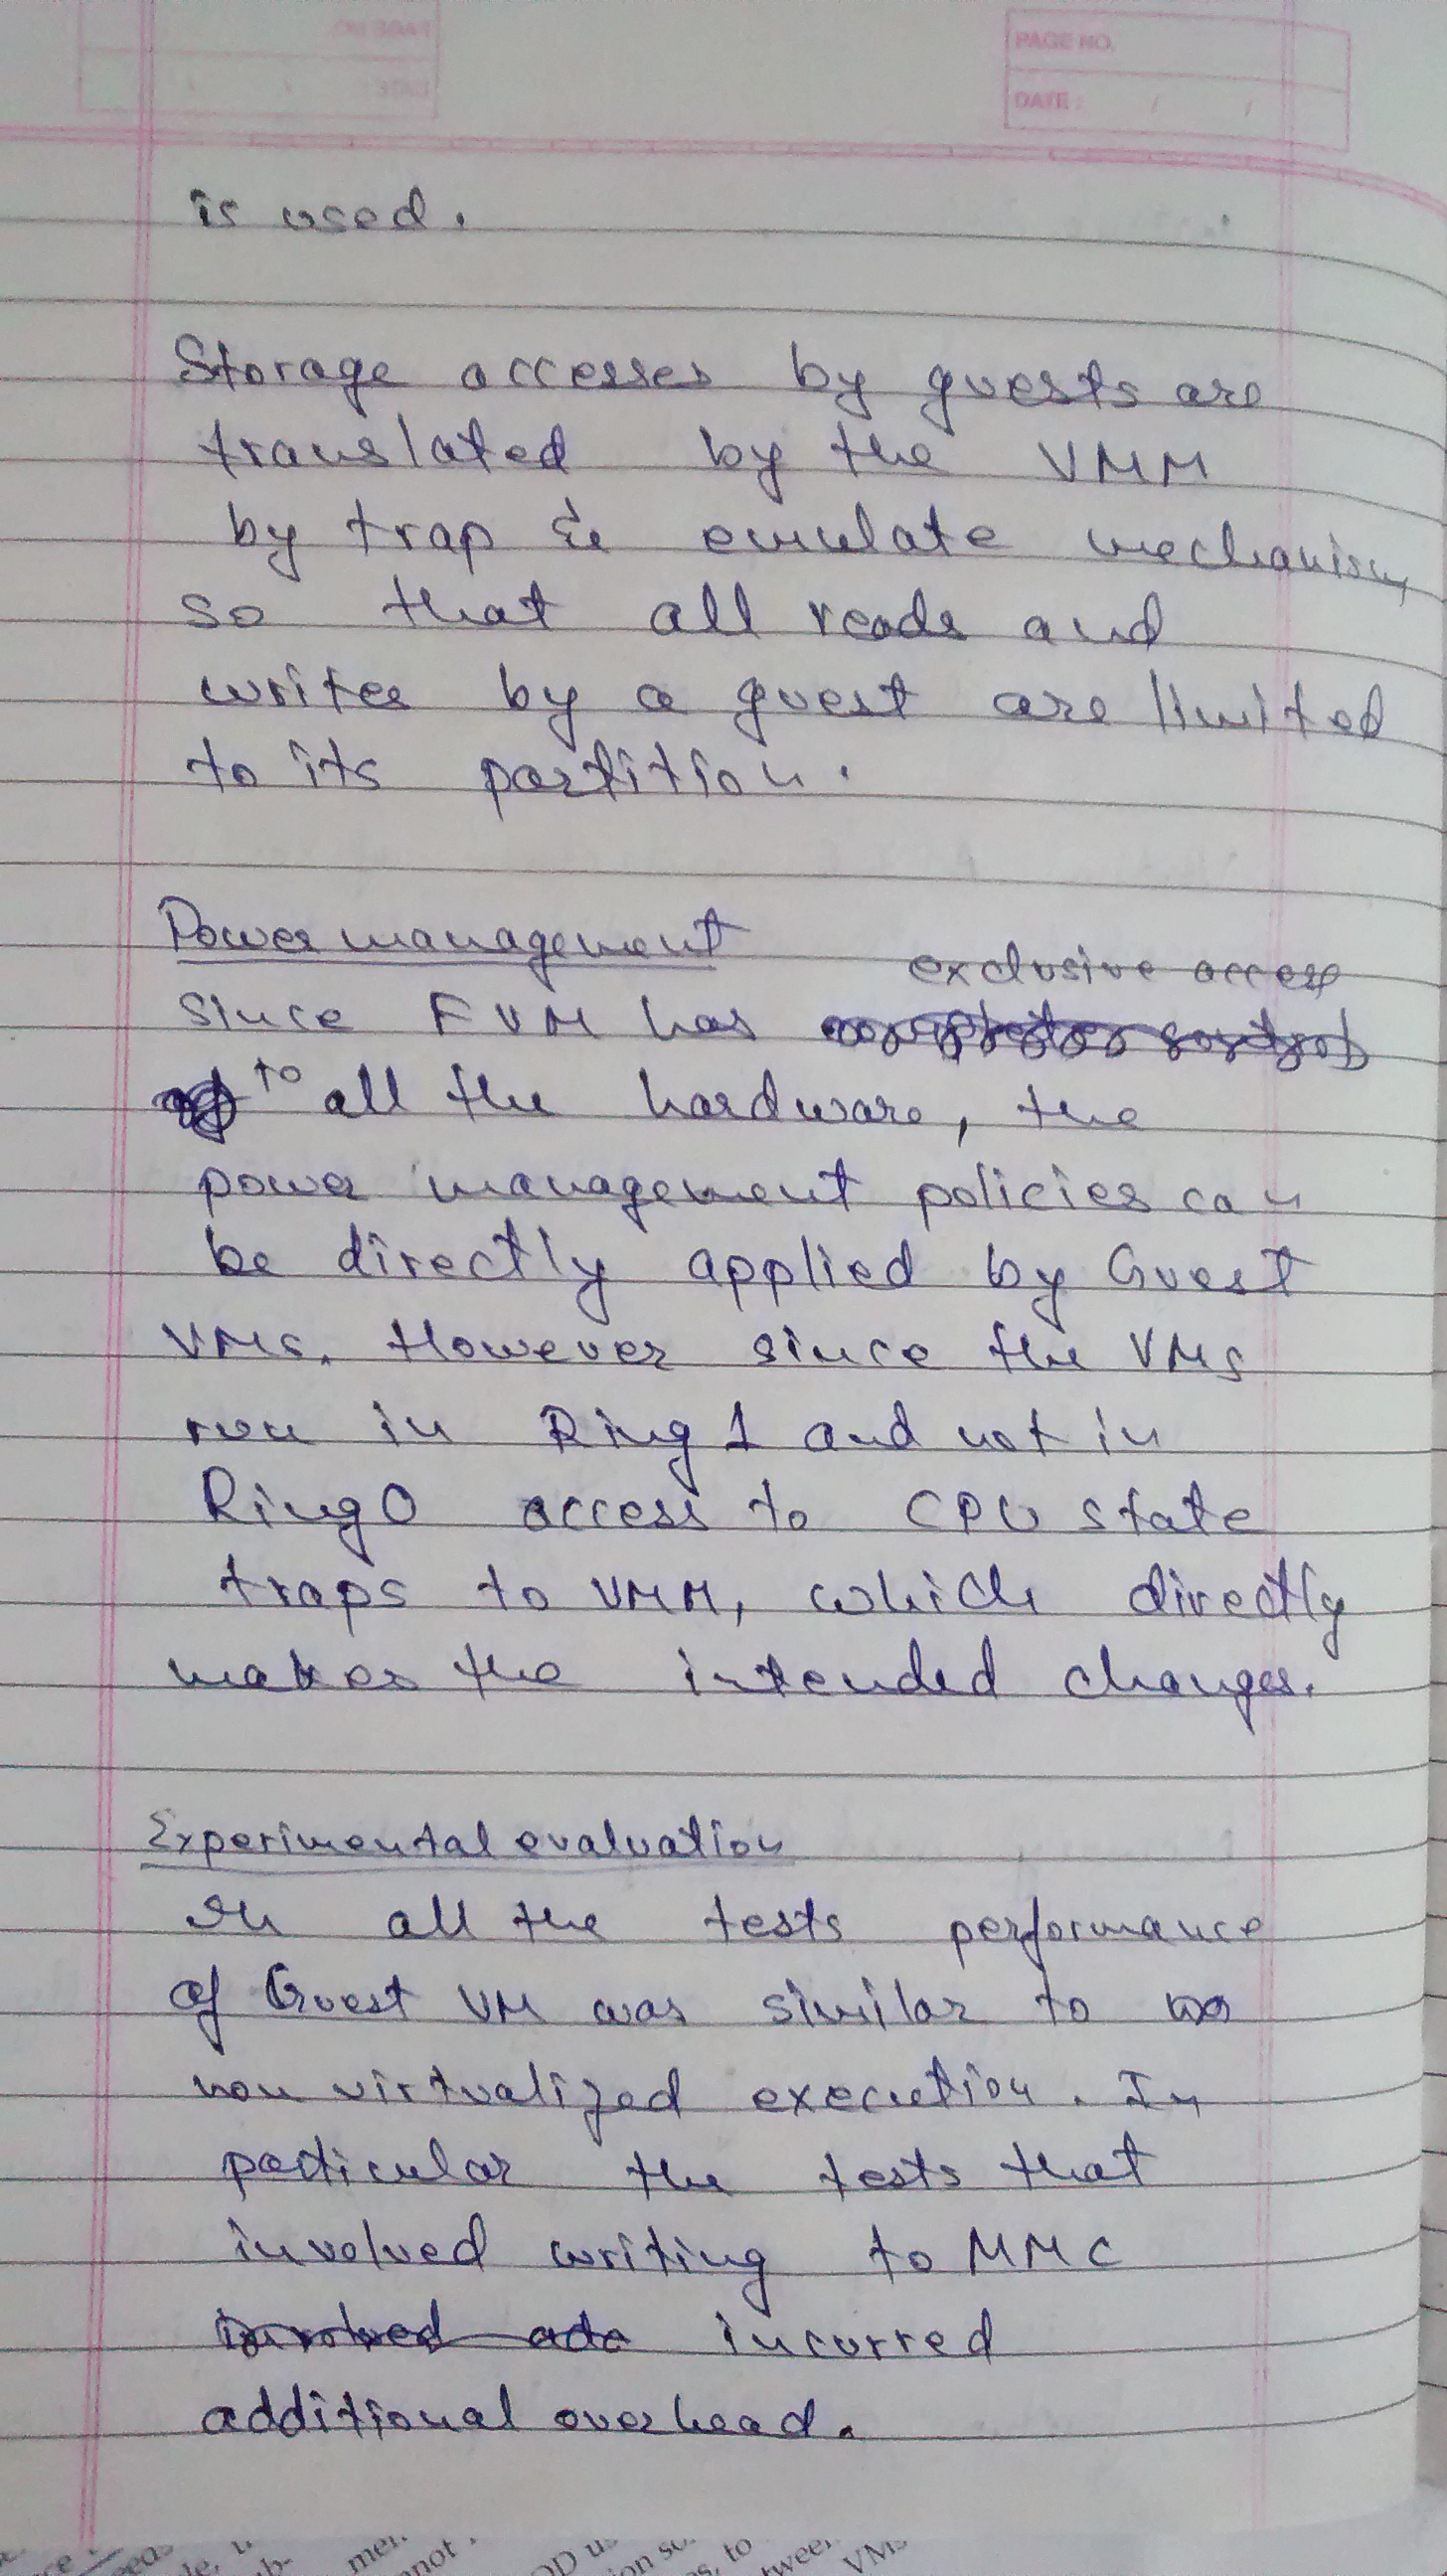 PAGE NO.
DATE : / /
is used.
Storage accesses by guests are
translated by the VMM
by trap & emulate mechanism
so that all reads and
writes by a guest are limited
to its partition.
Power management
exclusive access
Since FVM has
to all the hardware, the
power management policies can
be directly applied by Guest
VMs. However since the VMs
run in Ring 1 and not in
Ring 0 access to CPU state
traps to VMM, which directly
makes the intended changes.
Experimental evaluation
In all the tests performance
of Guest VM was similar to
non virtualized execution. In
particular the tests that
involved writing to MMC
involved incurred
additional overhead.